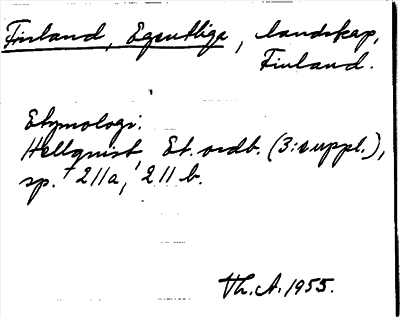 Finland, Egentliga, landskap,
Finland.
Etymologi:
Hellquist Et. ordb. (3: suppl.),
sp. 211a, 211 b.
Th. A. 1955.